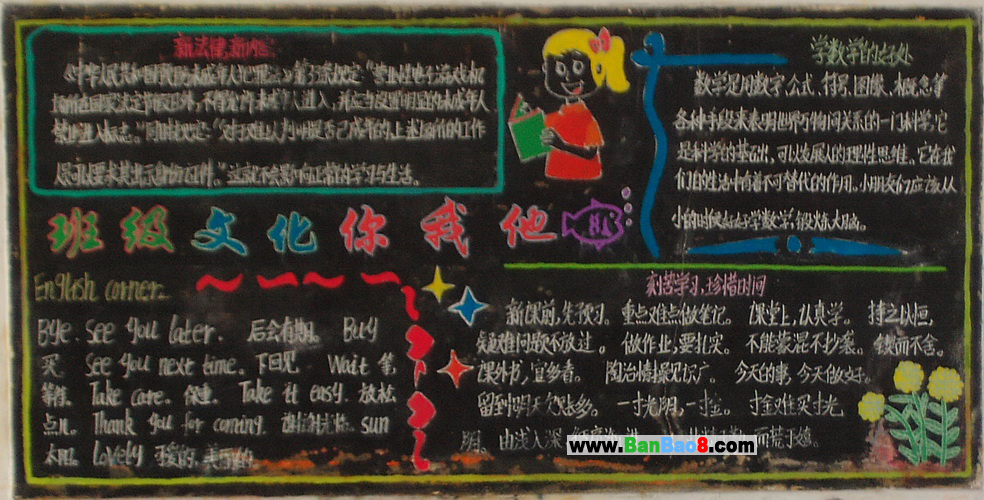 《中华人民共和国预防未成年人犯罪法》第33条规定："营业性电子游戏场所
在国家法定节假日外，不得允许未成年人进入，并应当设置明显的未成年人
禁止进入标志。"同时规定："对于难以判明是否已成年的，上述场所的工作
人员可以要求其出示身份证件。"这就不会影响正常的学习与生活。
学数学的好处
数学是用数字、公式、符号、图像、概念等
各种手段来表明世界万物间关系的一门科学，它
是科学的基础，可以发展人的理性思维。它在我
们的生活中有着不可替代的作用。小朋友们应该从
小的时候好好学数学，锻炼大脑。
班级文化你我他
English corner
Bye. See you later. 后会有期。 Buy
买. See you next time. 下回见. Wait 等,
等待. Take care. 保重. Take it easy. 放松
点儿. Thank you for coming. 谢谢光临. sun
太阳. Lovely 可爱的, 美丽的.
刻苦学习,珍惜时间
新课前,先预习。 重点难点做笔记。 课堂上,认真学。 持之以恒,
疑难问题不放过。 做作业,要扎实。 不能蒙混不抄袭。 锲而不舍。
课外书,宜多看。 陶冶情操见识广。 今天的事,今天做好。
留到明天欠账多。 一寸光阴,一寸金。 寸金难买寸光
阴。 由浅入深,
www.BanBao8.com